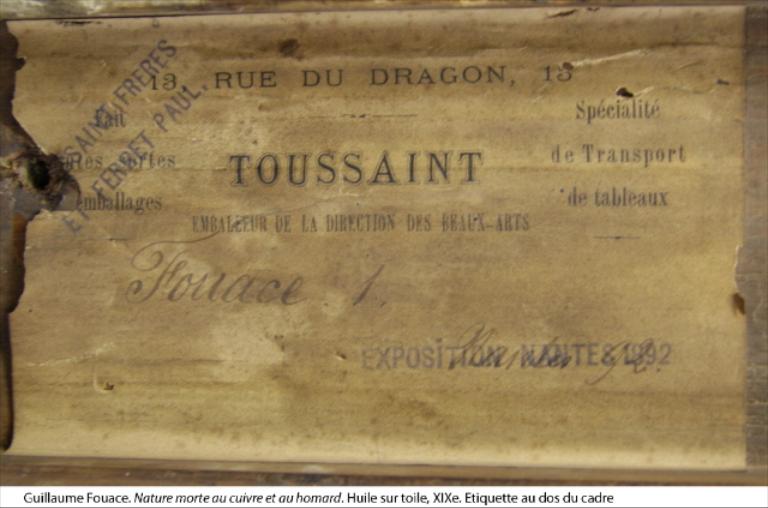 13, RUE DU DRAGON, 13
SAINT FRERES
ET FERRET PAUL.
Fait
toutes sortes
emballages
TOUSSAINT
EMBALLEUR DE LA DIRECTION DES BEAUX-ARTS
Spécialité
de Transport
de tableaux
Fouace 1.
EXPOSITION NANTES 1892
Nantes 92.
Guillaume Fouace. Nature morte au cuivre et au homard. Huile sur toile, XIXe. Etiquette au dos du cadre